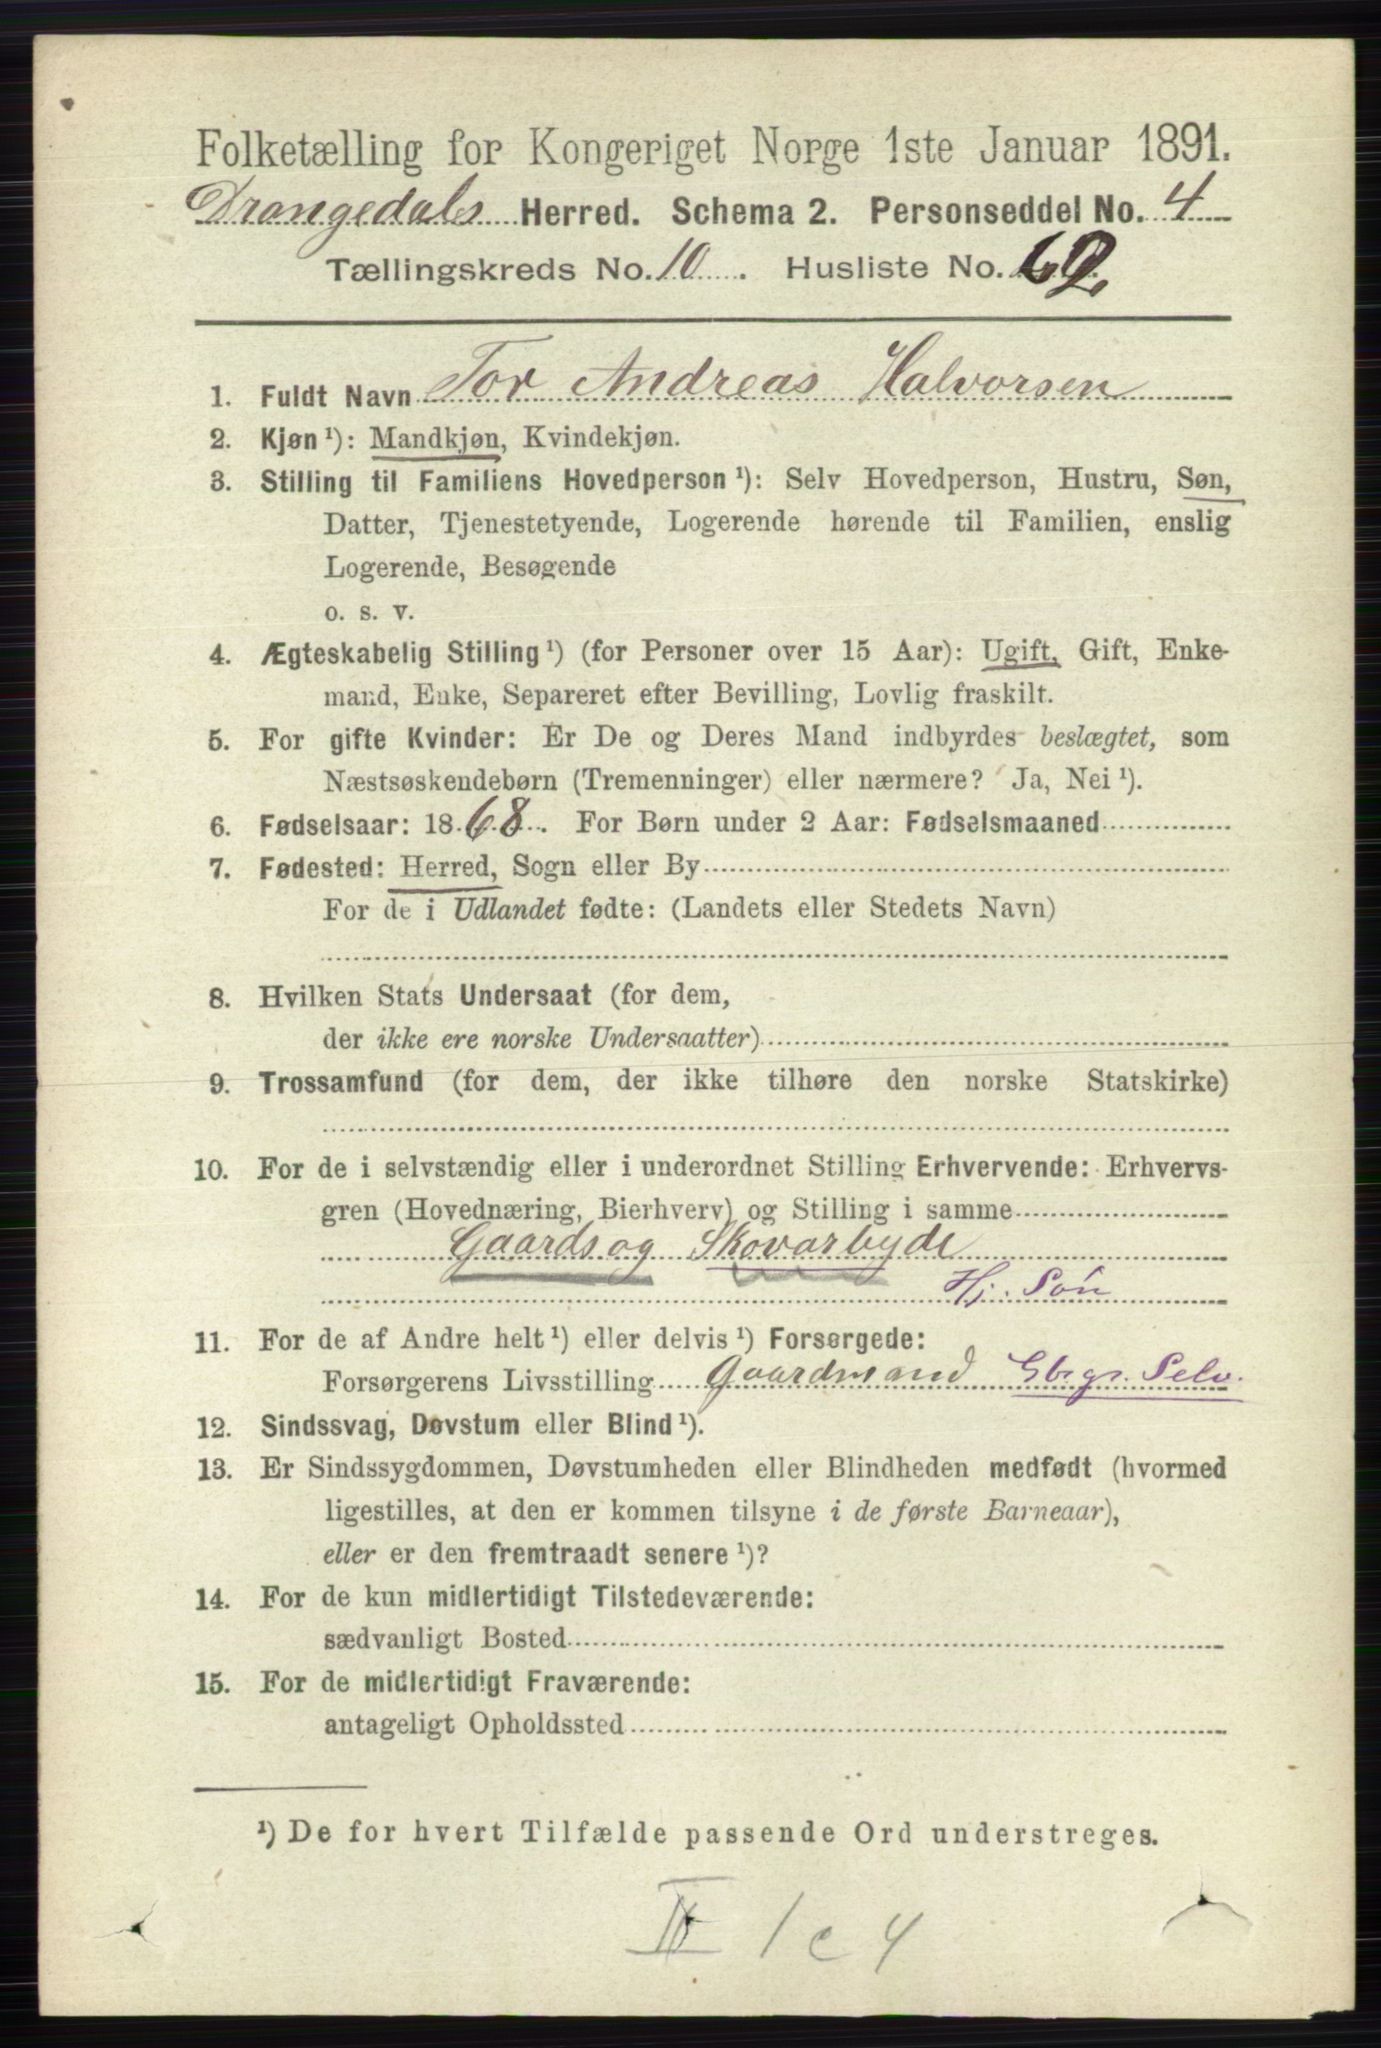 Folketælling for Kongeriget Norge 1ste Januar 1891.
Drangedals Herred. Schema 2. Personseddel No. 4
Tællingskreds No. 10. Husliste No.
1. Fuldt Navn Tor Andreas Halvorsen
2. Kjøn ¹): Mandkjøn, Kvindekjøn.
3. Stilling til Familiens Hovedperson ¹): Selv Hovedperson, Hustru, Søn,
Datter, Tjenestetyende, Logerende hørende til Familien, enslig
Logerende, Besøgende
o. s. v.
4. Ægteskabelig Stilling ¹) (for Personer over 15 Aar): Ugift, Gift, Enke-
mand, Enke, Separeret efter Bevilling, Lovlig fraskilt.
5. For gifte Kvinder: Er De og Deres Mand indbyrdes beslægtet, som
Næstsøskendebørn (Tremenninger) eller nærmere? Ja, Nei ¹).
6. Fødselsaar: 1868. For Børn under 2 Aar: Fødselsmaaned
7. Fødested: Herred, Sogn eller By
For de i Udlandet fødte: (Landets eller Stedets Navn)
8. Hvilken Stats Undersaat (for dem,
der ikke ere norske Undersaatter)
9. Trossamfund (for dem, der ikke tilhøre den norske Statskirke)
10. For de i selvstændig eller i underordnet Stilling Erhvervende: Erhvervs-
gren (Hovednæring, Bierhverv) og Stilling i samme
Gaards og Skovarbyde
Hj. Søn
11. For de af Andre helt ¹) eller delvis ¹) Forsørgede:
Forsørgerens Livsstilling Gaardmand Gbgr. Selv.
12. Sindssvag, Døvstum eller Blind ¹).
13. Er Sindssygdommen, Døvstumheden eller Blindheden medfødt (hvormed
ligestilles, at den er kommen tilsyne i de første Barneaar),
eller er den fremtraadt senere ¹)?
14. For de kun midlertidigt Tilstedeværende:
sædvanligt Bosted
15. For de midlertidigt Fraværende:
antageligt Opholdssted
¹) De for hvert Tilfælde passende Ord understreges.
II 1 c 4